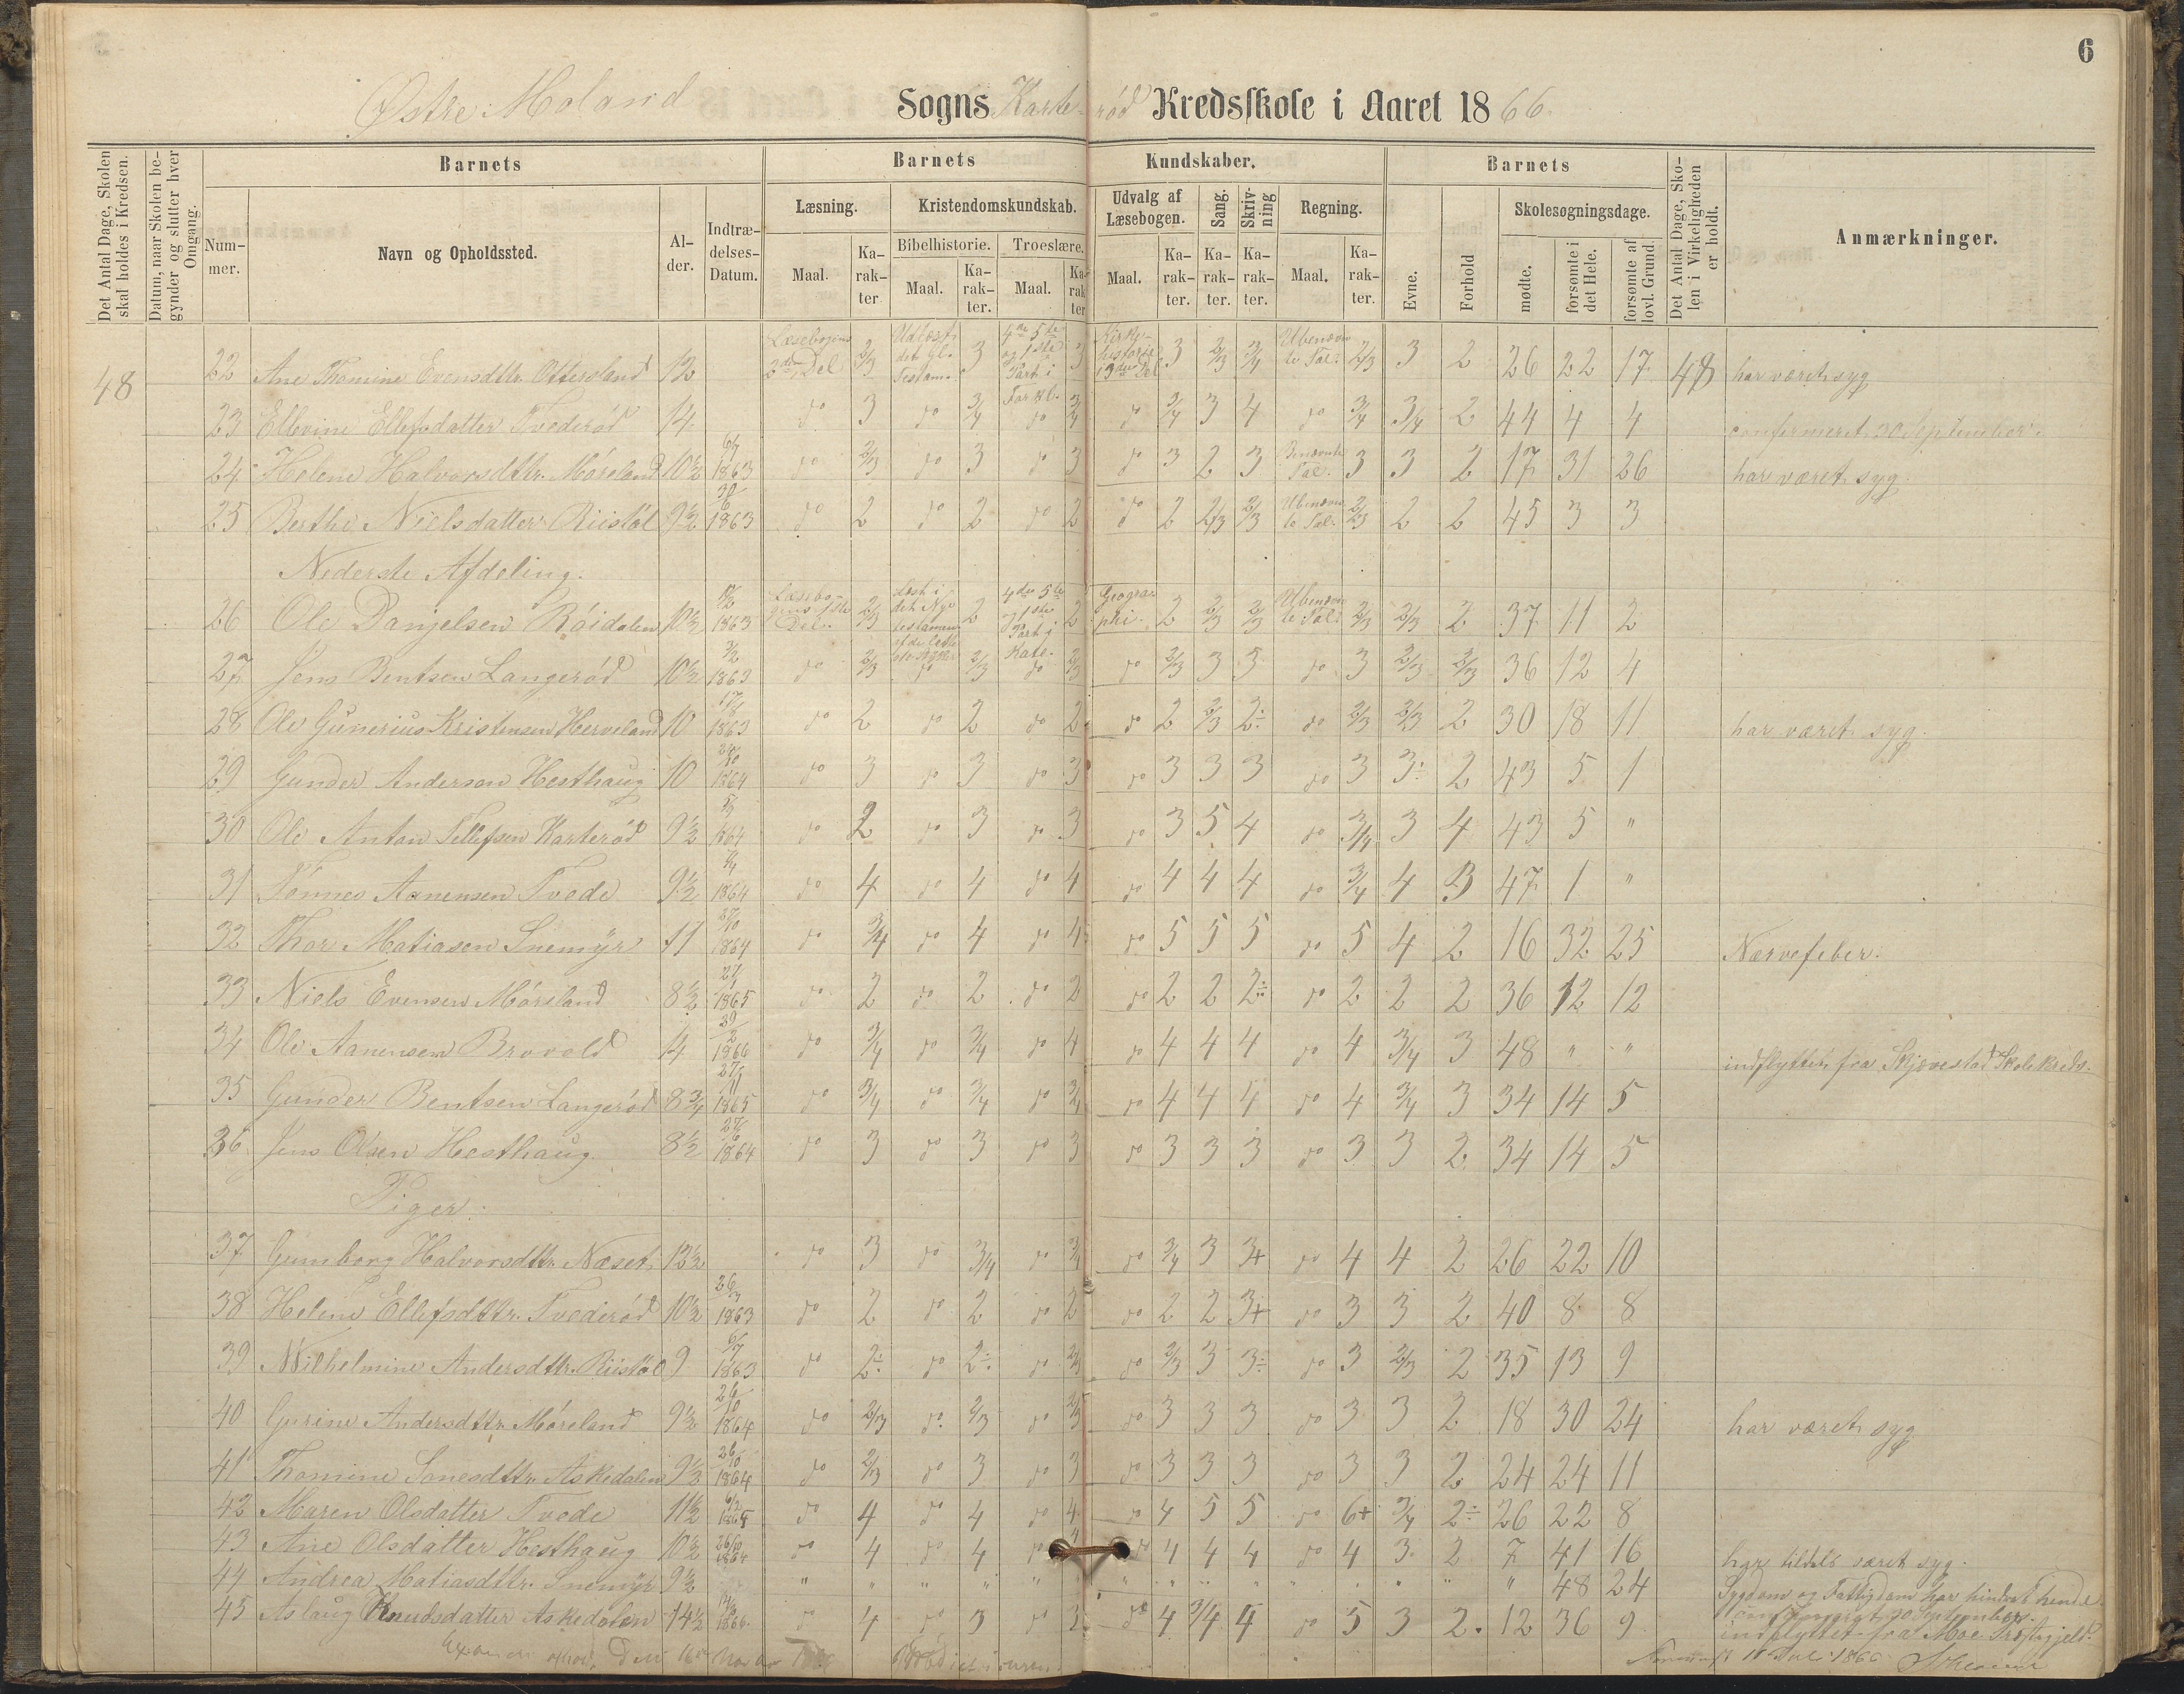 6
Østre Moland Sogns Karterød Kredsskole i Aaret 1866.
Det Antal Dage, Skolen skal holdes i Kredsen.
Datum, naar Skolen begynder og slutter hver Omgang.
Barnets
Barnets Kundskaber.
Barnets
Det Antal Dage, Skolen i Virkeligheden er holdt.
Anmærkninger.
Nummer. Navn og Opholdssted. Alder. Indtrædelses-Datum.
Læsning. Kristendomskundskab. Udvalg af Læsebogen. Sang. Skrivning Regning. Evne. Forhold Skolesøgningsdage.
Bibelhistorie. Troeslære.
Maal. Karakter Maal. Karakter. Maal. Karakter Maal. Karakter. Karakter. Karakter. Maal. Karakter. mødte. forsømte i det Hele. forsømte af lovl. Grund.
48 22 Ane Thomine Evensdttr. Ottersland 12 Læsebogens 2den Del 2/3 3 3 3 2/3 3/4 2/3 3 2 26 22 17 48 har været syg
23 Ellevine Ellefsdatter Tvederød 14 do 3 do 3/4 do 3/4 do 3/4 3 4 do 3/4 3/4 2 44 4 4 confirmeret 30 September.
24 Helene Halvorsdttr. Møreland 10½ 6/7 1863 do 2/3 do 3 do 3 do 3 2 3 Benævnte Tal. 3 3 2 17 31 26 har været syg.
25 Berthe Nielsdatter Riistøl 9½ 1863 do 2 do 2 do 2 do 2 2/3 2/3 Ubenævnte Tal. 2/3 2 2 45 3 3
Nederste Afdeling.
26 Ole Danjelsen Røidalen 10½ 1863 Læsebogens 1ste Del. 2/3 2 2 Geographi. 2 2/3 2/3 Ubenævnte Tal. 2/3 2/3 2 37 11 2
27 Jens Bentsen Langerød 10½ 3/2 1863 do 2/3 do 2/3 do 2/3 do 2/3 3 3 do 3 2/3 2/3 36 12 4
28 Ole Gunerius Kristensen Herveland 10 1863 do 2 do 2 do 2 do 2 2/3 2÷ do 2/3 2/3 2 30 18 11 har været syg.
29 Gunder Andersen Hesthaug 10 1864 do 3 do 3 do 3 do 3 3 3 do 3 3÷ 2 43 5 1
30 Ole Anton Tellefsen Karterød 9½ 1864 do 2 do 3 do 3 do 3 5 4 do 3/4 3 4 43 5 "
31 Tønnes Aanensen Tvede 9½ 1864 do 4 do 4 do 4 do 4 4 4 do 3/4 4 3 47 1 "
32 Thor Matiasen Snemyr 11 1864 do 3/4 do 4 do 4 do 5 5 5 do 5 4 2 16 32 25 Nervefeber.
33 Niels Evensen Mørland 8½ 1865 do 2 do 2 do 2 do 2 2 2÷ do 2 2 2 36 12 12
34 Ole Aanensen Brovold 14 1866 do 3/4 do 3/4 do 4 do 4 4 4 do 4 3/4 3 48 " " indflyttet fra Skjævestad Skolekreds.
35 Gunder Bentsen Langerød 8¾ 1865 do 3/4 do 3/4 do 3/4 do 4 4 4 do 4 3/4 3 34 14 5
36 Jens Olsen Hesthaug. 8½ 1864 do 3 do 3 do 3 do 3 3 3 do 3 3 2 34 14 5
Piger.
37 Gunborg Halvorsdttr. Næset 13½ do 3 do 3/4 do 3/4 do 3/4 3 3+ do 4 4 2 26 22 10
38 Helene Ellefsdttr. Tvederød 10½ 26/3 1863 do 2 do 2 do 2 do 2 2 3+ do 3 3 2 40 8 8
39 Wilhelmine Andersdttr. Riistøl 9 6/7 1863 do 2÷ do 2÷ do 2/3 do 2/3 3 3÷ do 3 2/3 2 35 13 9
40 Gurine Andersdttr. Møreland 9½ 26/10 1864 do 2/3 do 2/3 do 2/3 do 3 3 3 do 3 3 2 18 30 24 har været syg
41 Thomine Sonesdttr. Askedalen 9½ 26/10 1864 do 2/3 do 3 do 3 do 3 3 3 do 3 3 2 24 24 11
42 Maren Olsdatter Tvede 11½ do 4 do 4 do 4 do 4 5 5 do 6+ 3/4 2÷ 26 22 8
43 Ane Olsdatter Hesthaug 10½ 26/10 1864 do 4 do 4 do 4 do 4 4 4 do 4 3 2 7 41 16 har tildels været syg.
44 Andrea Matiasdttr. Snemyr 9½ " " " " " " " " " " " " " " " 48 24 Sygdom og Fattigdom har hindret hende.
45 Aslaug Knudsdatter Askedalen 14½ 1866 do 4 do 3 do 3 do 4 3/4 4 do 5 3 2. 12 36 9 confirmeret 30 September. indflyttet fra Moe Præstegjeld.